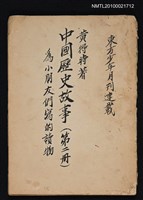 NMTL20100021712
東方少年月刊連載
黃得時著
中國歷史故事(第二冊)
為小朋友們寫的讀物